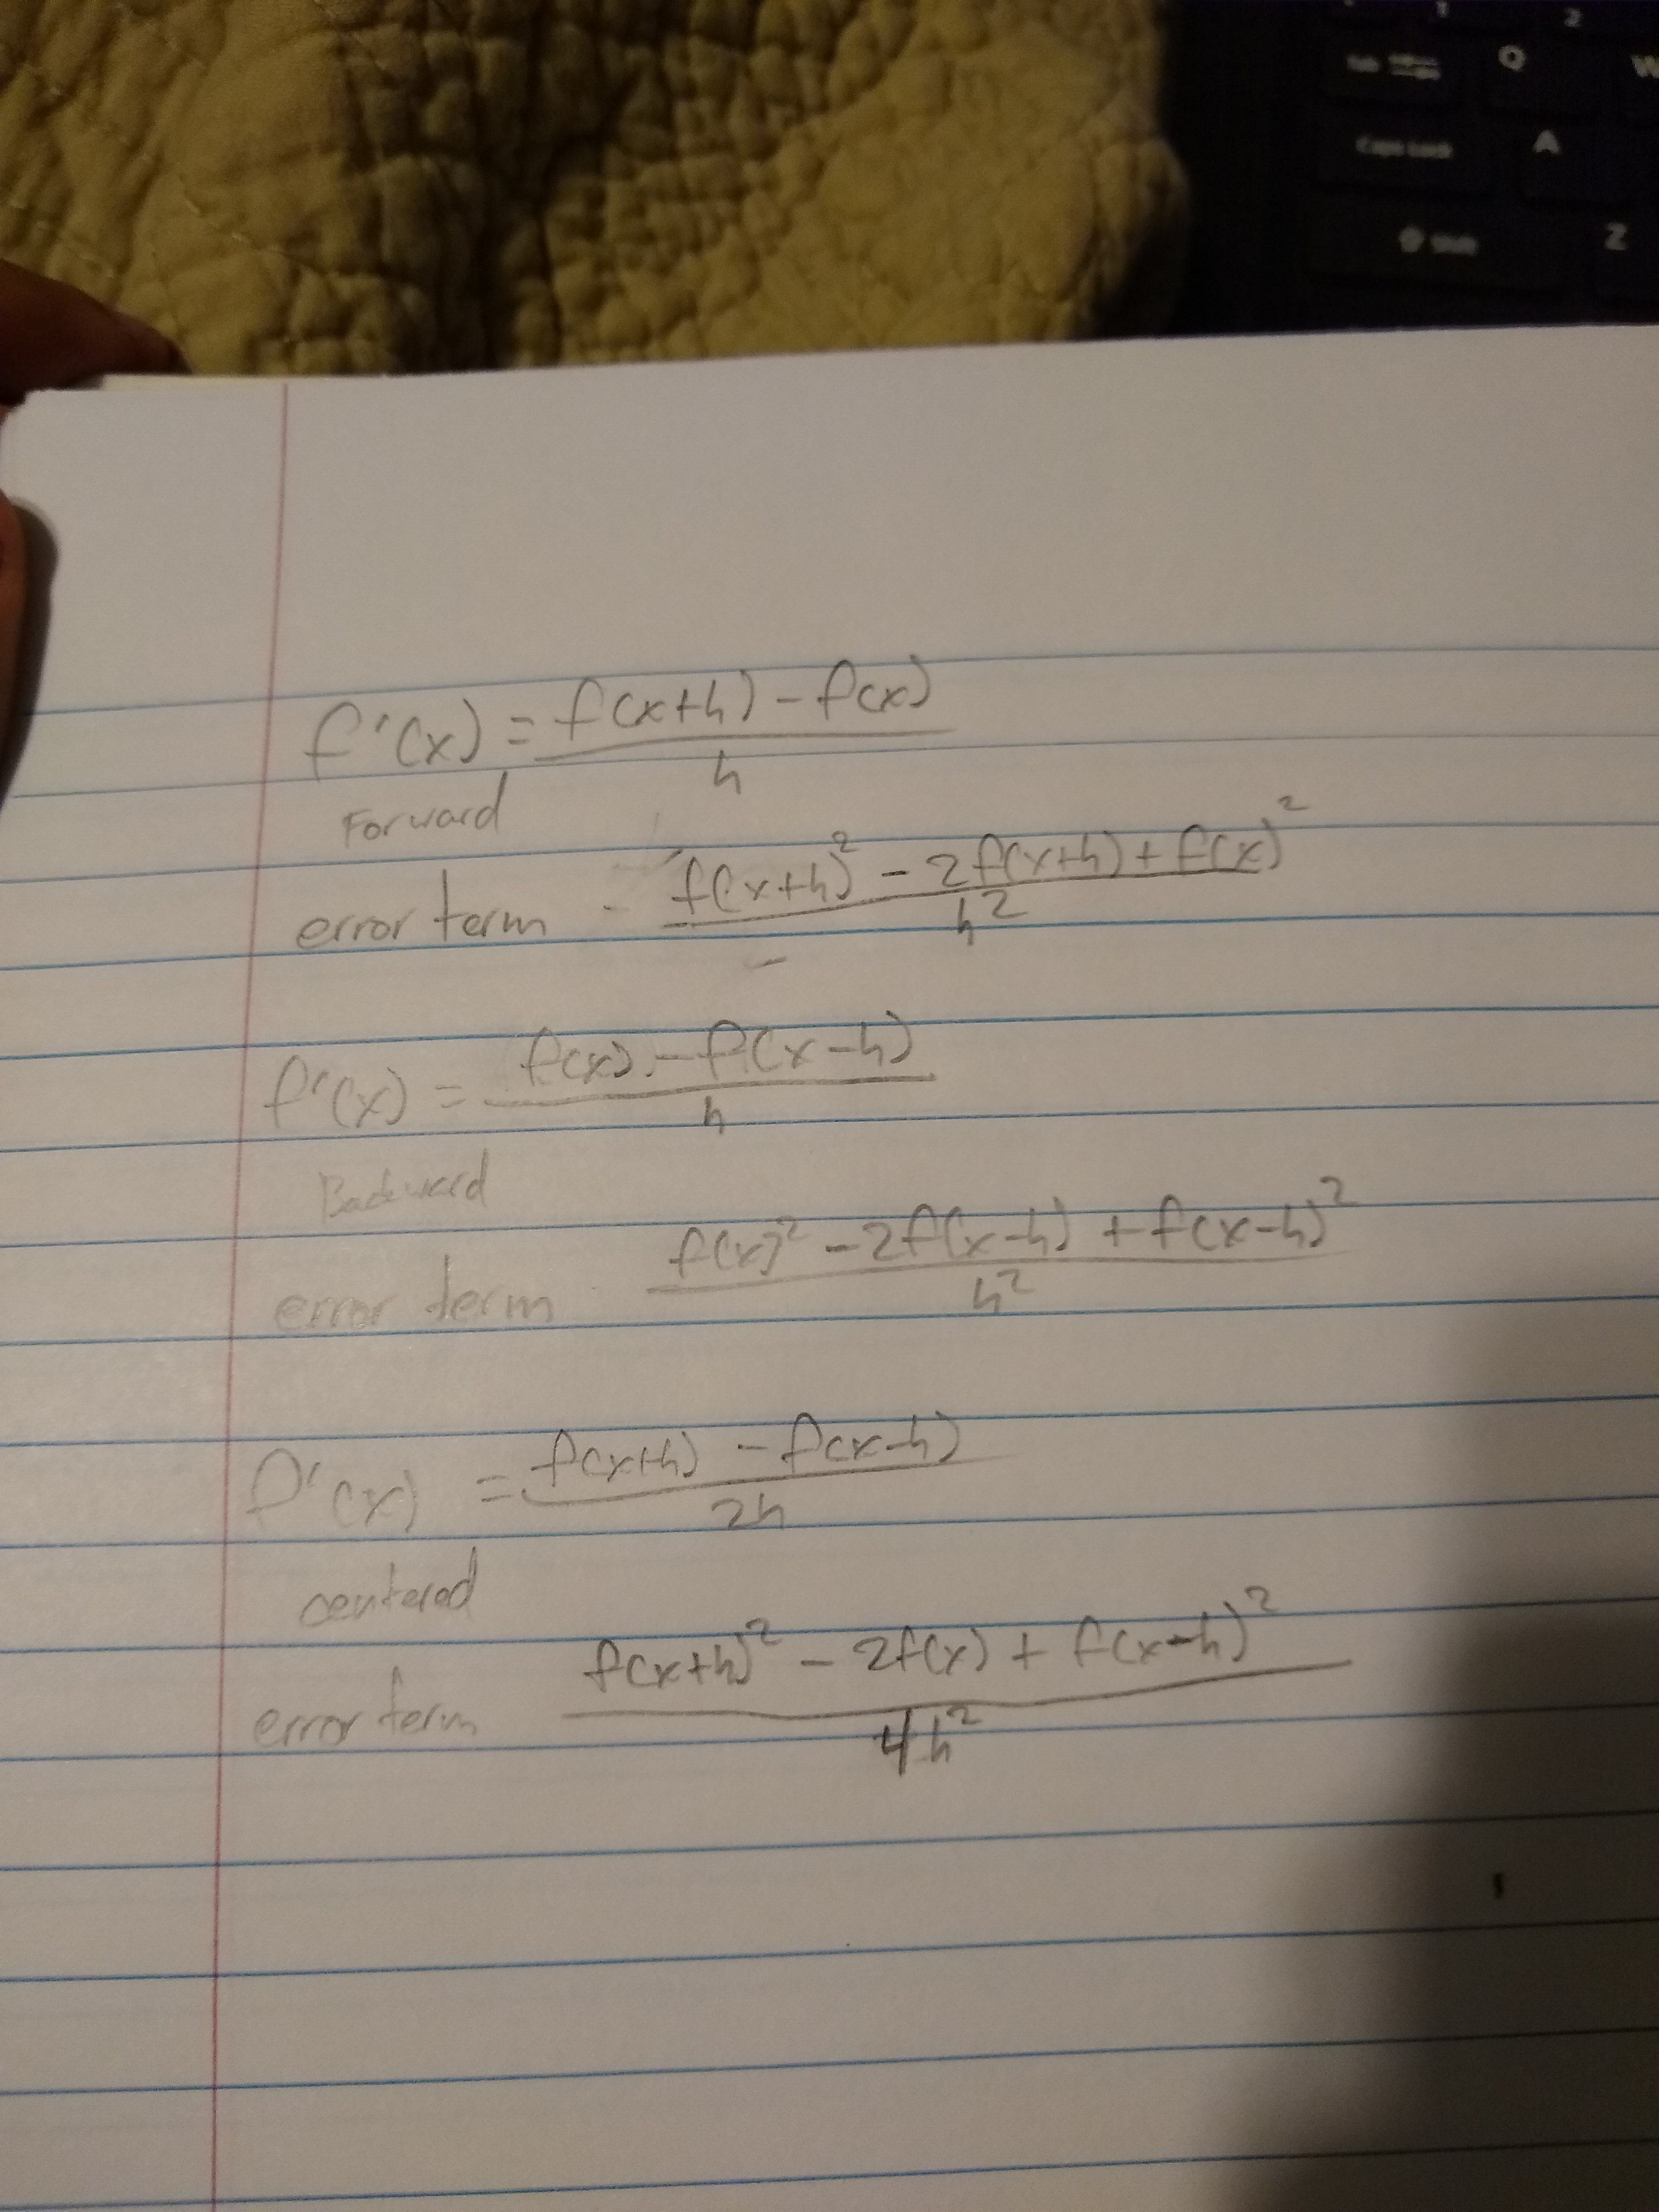 1 2
Tab Q W
Caps Lock A
Shift Z
f'(x) = f(x+h) - f(x) / h
Forward
error term - f(x+h)² - 2f(x+h) + f(x)² / h²
f'(x) = f(x) - f(x-h) / h
Backward
error term f(x)² - 2f(x-h) + f(x-h)² / h²
f'(x) = f(x+h) - f(x-h) / 2h
centered
error term f(x+h)² - 2f(x) + f(x-h)² / 4h²